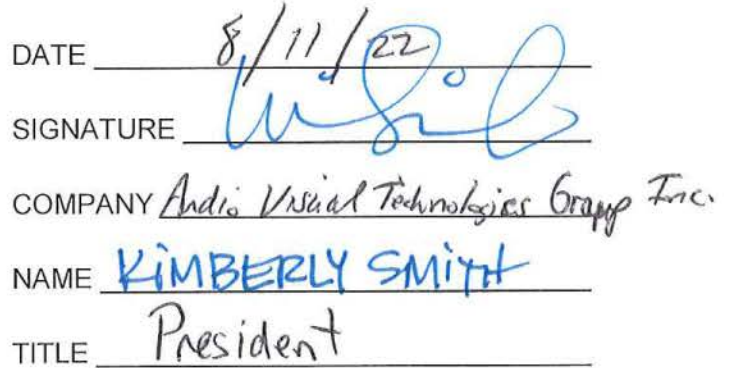 DATE 8/11/22
SIGNATURE
COMPANY Audio Visual Technologies Group Inc.
NAME KiMBERLY SMiTH
TITLE President